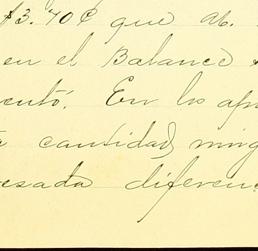 $3.70¢ que
en el Balance
entó. En los
cantidad,
esada diferen